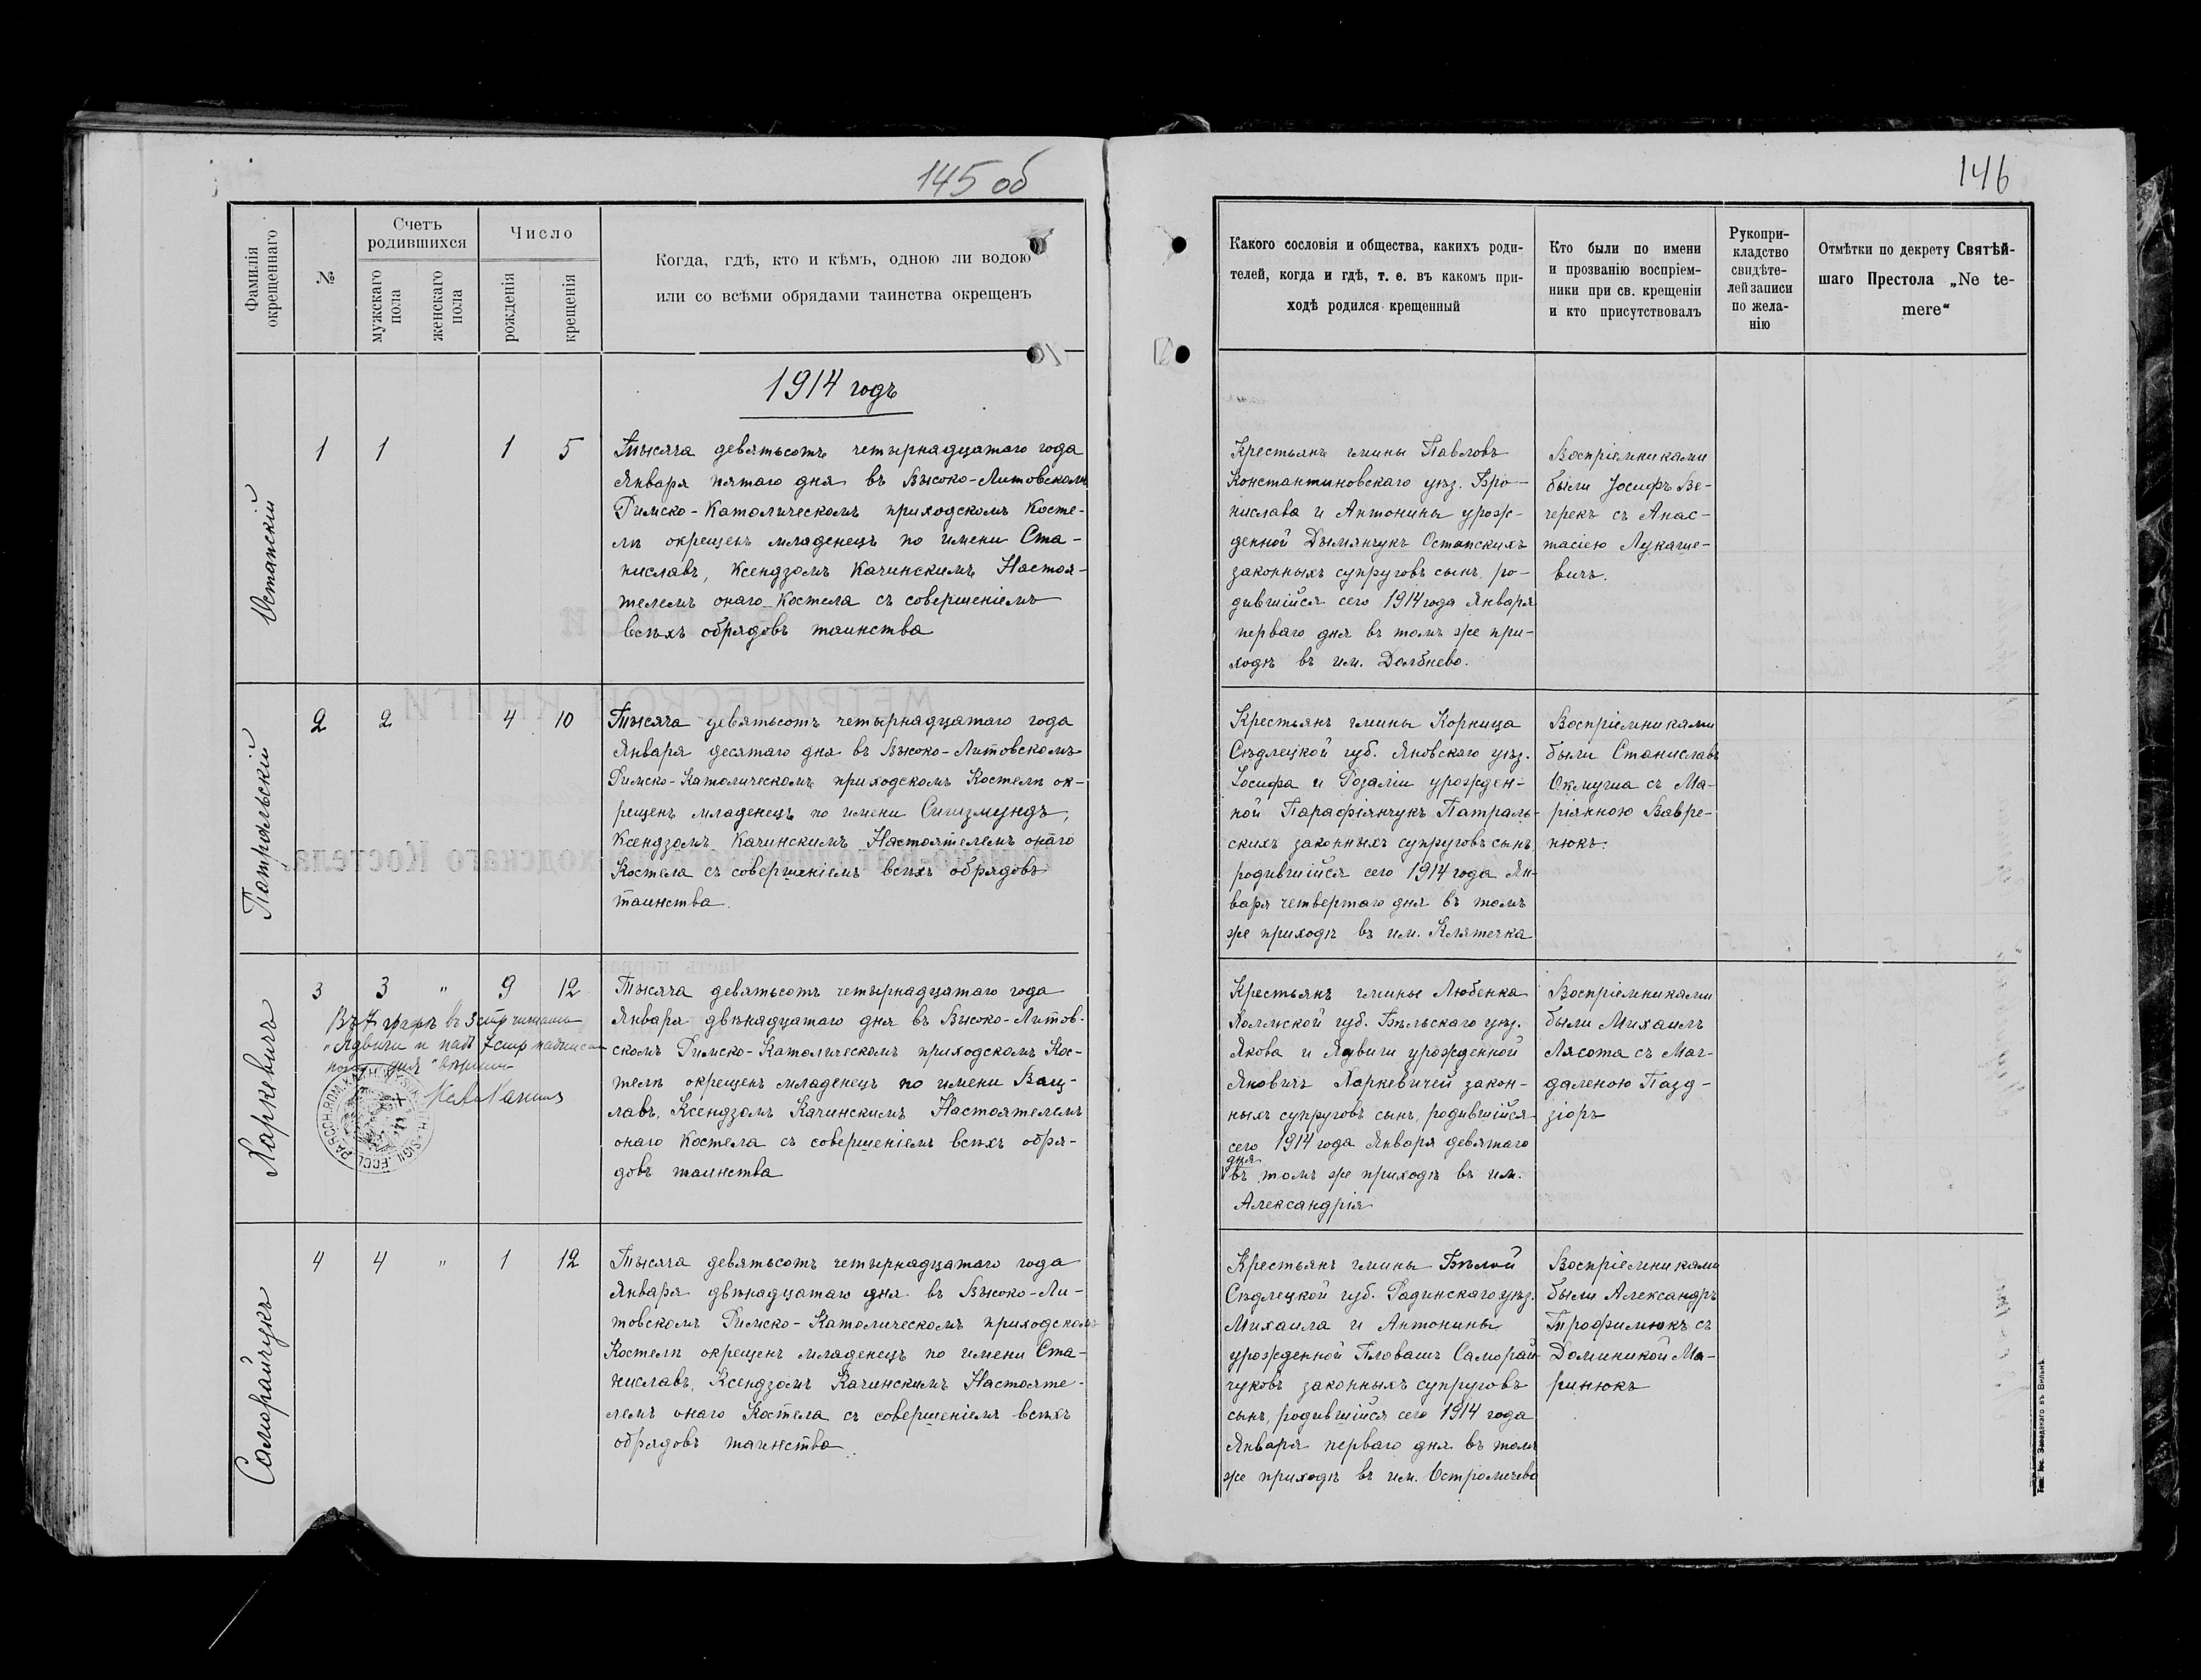 145 об
Фамилія
окрещеннаго
№
Счетъ
родившихся
мужскаго
пола
женскаго
пола
Число
рожденія
крещенія
Когда, гдѣ, кто и кѣмъ, одною ли водою
или со всѣми обрядами таинства окрещенъ
1914 годъ
Остапскій
1 1 1 5
Тысяча девятьсотъ четырнадцатаго года
Января пятаго дня въ Высоко-Литовскомъ
Римско-Католическомъ приходскомъ Косте-
лѣ окрещенъ младенецъ по имени Ста-
ниславъ, Ксендзомъ Качинскимъ Настоя-
телемъ онаго Костела съ совершеніемъ
всѣхъ обрядовъ таинства
Патральскій
2 2 4 10
Тысяча девятьсотъ четырнадцатаго года
Января десятаго дня въ Высоко-Литовскомъ
Римско-Католическомъ приходскомъ Костелѣ ок-
рещенъ младенецъ по имени Сигизмундъ,
Ксендзомъ Качинскимъ Настоятелемъ онаго
Костела съ совершеніемъ всѣхъ обрядовъ
таинства.
Харкевичъ
3 3 " 9 12
Въ 7 графѣ въ 3 стр читать
"Ядвиги и надъ 7 стр
"дня"
Тысяча девятьсотъ четырнадцатаго года
Января двѣнадцатаго дня въ Высоко-Литов-
скомъ Римско-Католическомъ приходскомъ Кос-
телѣ окрещенъ младенецъ по имени Вац-
лавъ, Ксендзомъ Качинскимъ Настоятелемъ
онаго Костела съ совершеніемъ всѣхъ обря-
довъ таинства
Саморайчукъ
4 4 " 1 12
Тысяча девятьсотъ четырнадцатаго года
Января двѣнадцатаго дня въ Высоко-Ли-
товскомъ Римско-Католическомъ приходскомъ
Костелѣ окрещенъ младенецъ по имени Ста-
ниславъ, Ксендзомъ Качинскимъ Настояте-
лемъ онаго Костела съ совершеніемъ всѣхъ
обрядовъ таинства.
146
Какого сословія и общества, какихъ роди-
телей, когда и гдѣ, т. е. въ какомъ при-
ходѣ родился крещенный
Кто были по имени
и прозванію воспріем-
ники при св. крещеніи
и кто присутствовалъ
Рукопри-
кладство
свидѣте-
лей записи
по жела-
нію
Отмѣтки по декрету Святѣй-
шаго Престола „Ne te-
mere“
Крестьянъ гмины Павловъ
Константиновскаго уѣз. Бро-
нислава и Антонины урож-
денной Дымянчукъ Остапскихъ
законныхъ супруговъ сынъ, ро-
дившійся сего 1914 года Января
перваго дня въ томъ же при-
ходѣ въ им. Долбнево.
Воспріемниками
были Іосифъ Ве-
черекъ съ Анас-
тасіею Лукаше-
вичъ.
Крестьянъ гмины Корница
Сѣдлецкой губ. Яновскаго уѣз.
Іосифа и Розаліи урожден-
ной Парафіянчукъ Патраль-
скихъ законныхъ супруговъ сынъ
родившійся сего 1914 года Ян-
варя четвертаго дня въ томъ
же приходѣ въ им. Клятечка
Воспріемниками
были Станиславъ
Оклуша съ Ма-
ріянною Вавре-
нюкъ.
Крестьянъ гмины Любенка
Холмской губ. Бѣльскаго уѣз.
Якова и Ядвиги урожденной
Яковичъ Харкевичей закон-
ныхъ супруговъ сынъ, родившійся
сего 1914 года Января девятаго
дня
въ томъ же приходѣ въ им.
Александрія
Воспріемниками
были Михаилъ
Лясота съ Маг-
даленою Пазд-
зіоръ
Крестьянъ гмины Бѣлой
Сѣдлецкой губ. Радинскаго уѣз.
Михаила и Антонины
урожденной Пловашъ Саморай-
чуковъ законныхъ супруговъ
сынъ, родившійся сего 1914 года
Января перваго дня въ томъ
же приходѣ въ им. Остромечево
Воспріемниками
были Александръ
Трофимюкъ съ
Доминикой Ма-
ринюкъ
Тип. Іос. Завадзкаго въ Вильнѣ.